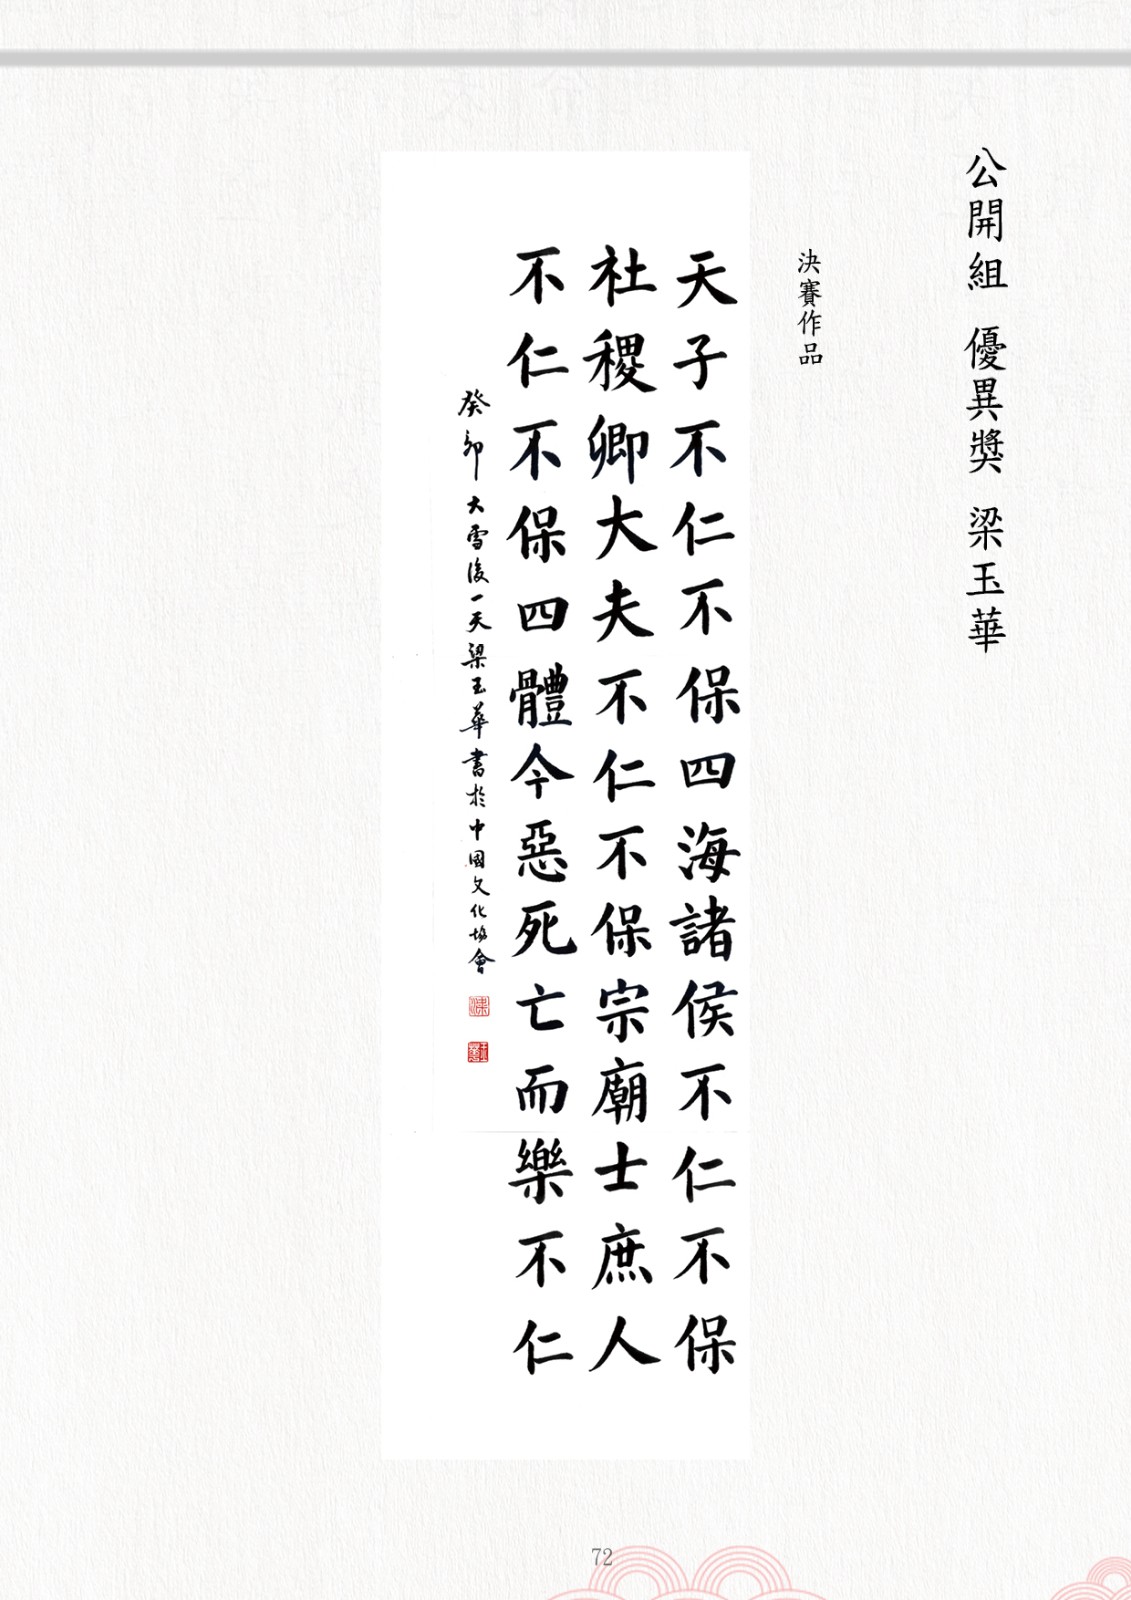 公開組 優異獎 梁玉華
決賽作品
天子不仁不保四海諸侯不仁不保
社稷卿大夫不仁不保宗廟士庶人
不仁不保四體今惡死亡而樂不仁
癸卯大雪後一天梁玉華書於中國文化協會
72